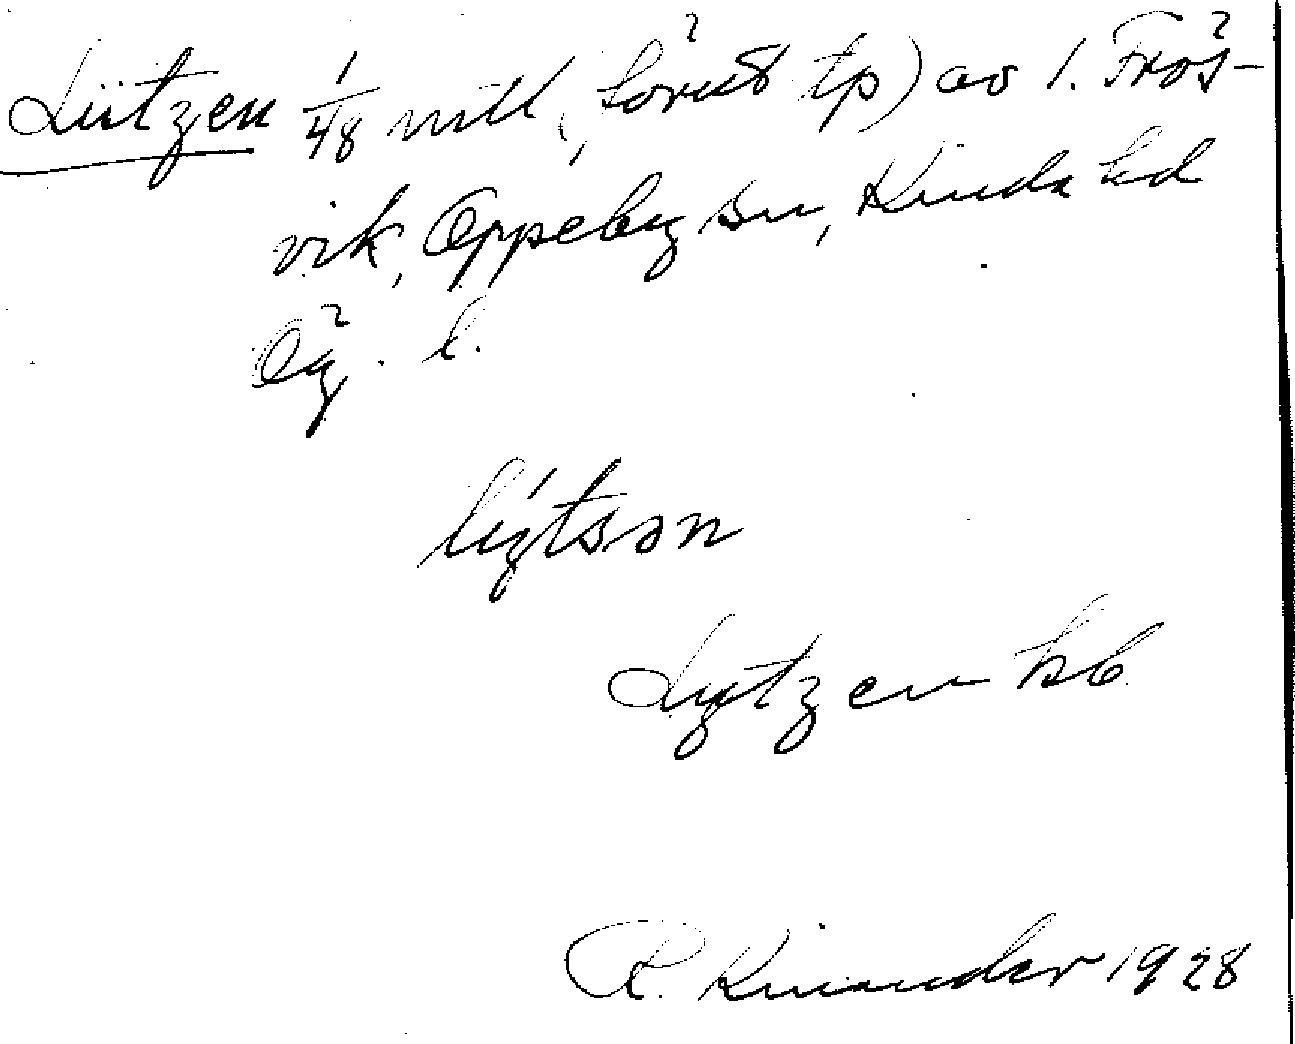 Lützen 1/48 mtl (, förut tp) av 1. Frös-
vik, Oppeby sn, Kinda hd
Ög. l.
lẏtsən
Lytzen kb
R. Kinander 1928